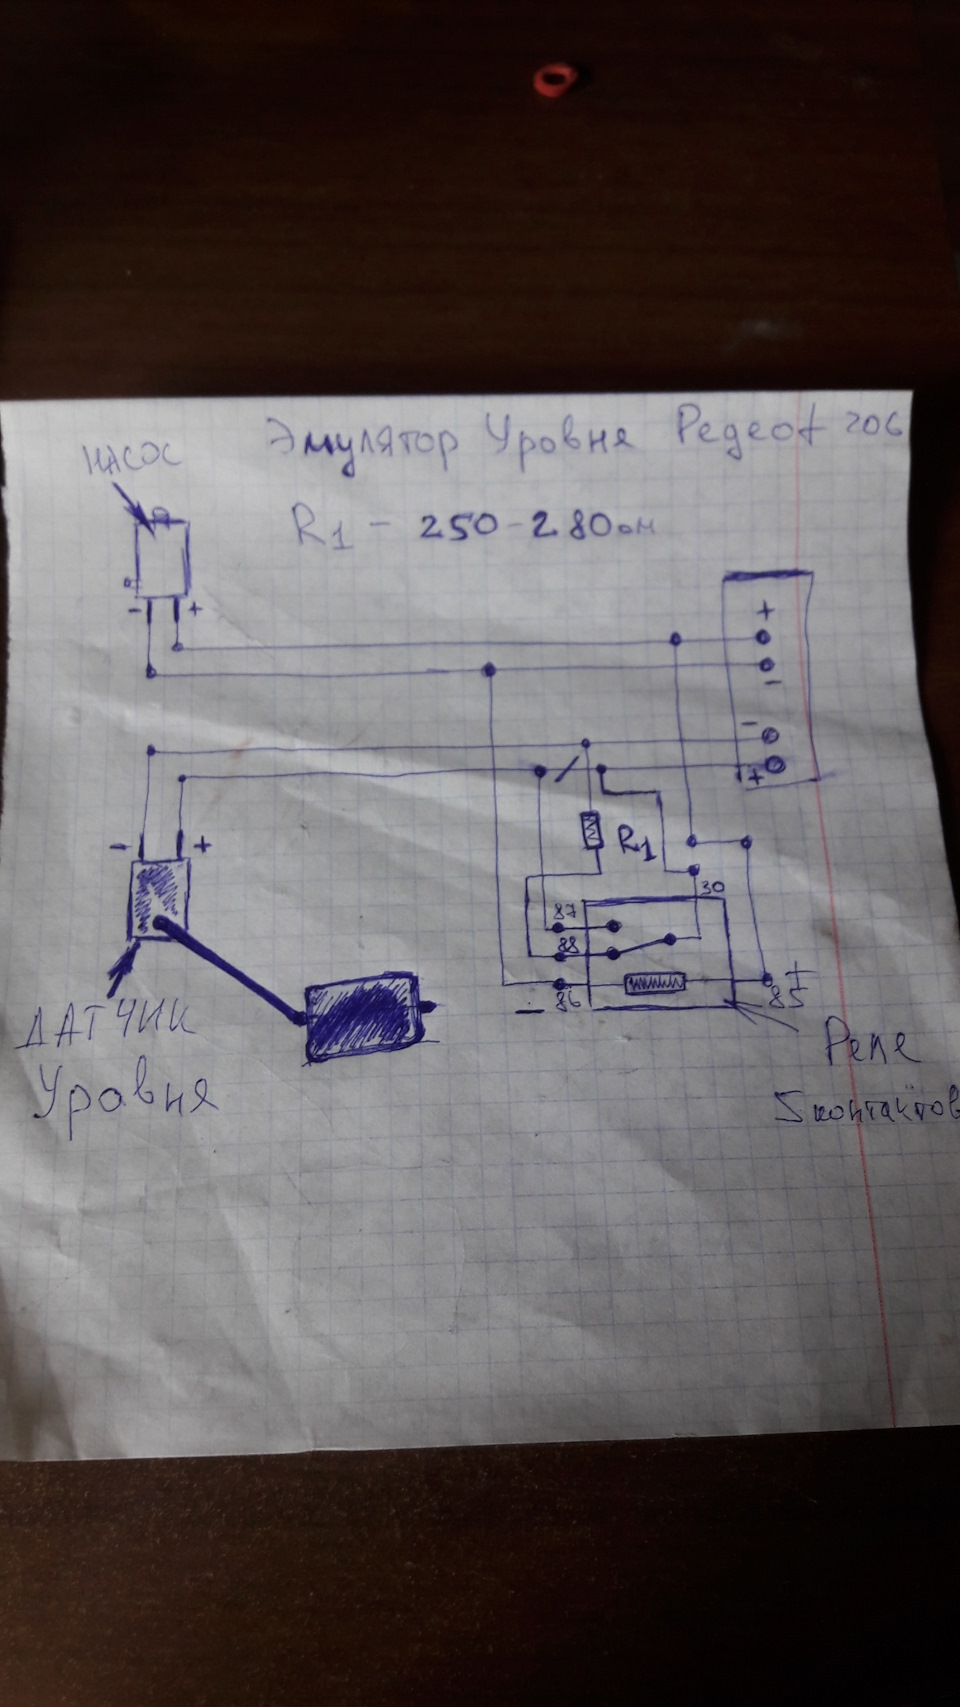 Эмулятор Уровня Pegeot 206
НАСОС
R1 - 250-280 ом
- +
+
-
-
+
- +
R1
30
87
88
86
-
+
85
ДАТЧИК
Уровня
Реле
5 контактов